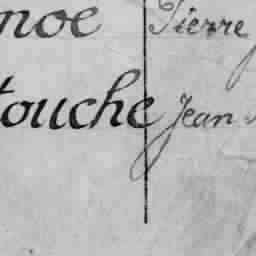 noe Pierre
touche Jean